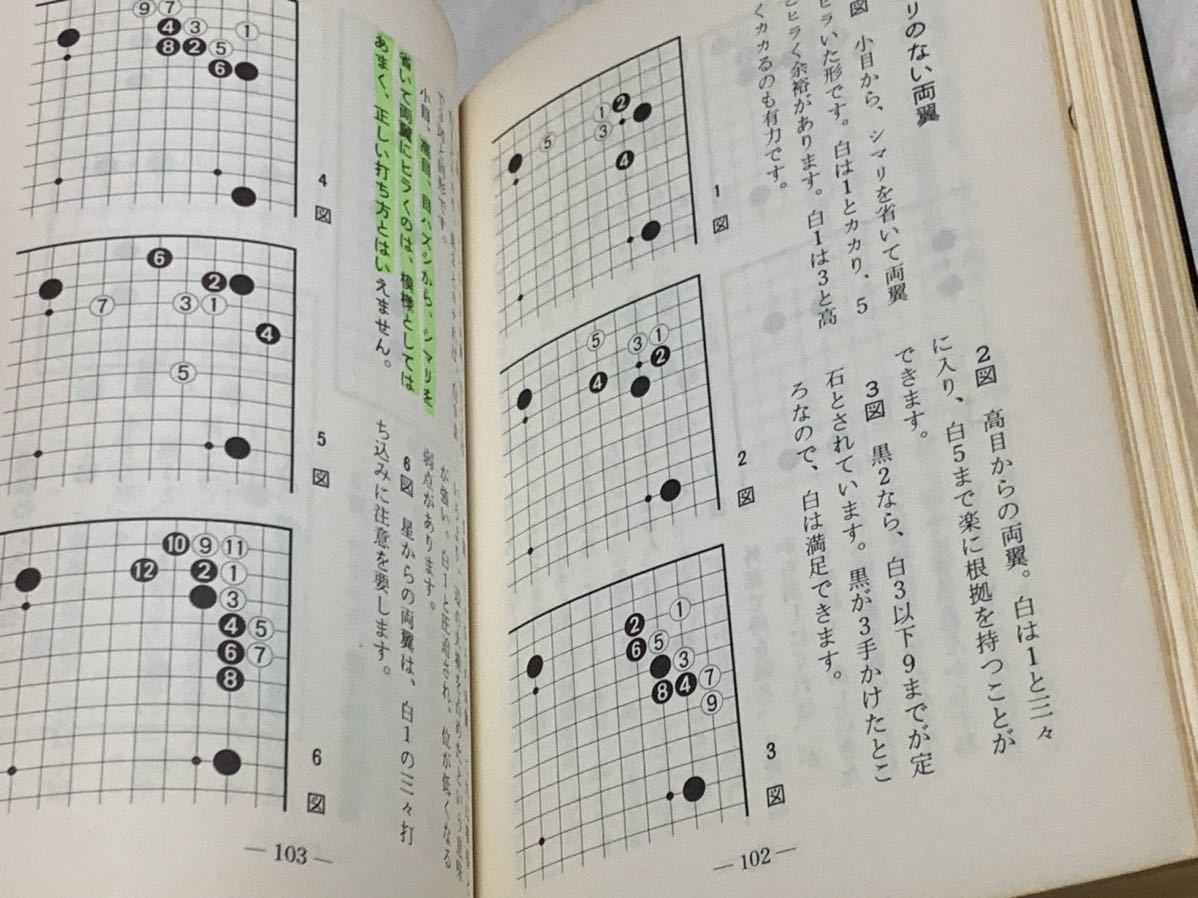 リのない両翼
図　小目から、シマリを省いて両翼
ヒラいた形です。白は1とカカり、5
とヒラく余裕があります。白1は3と高
くカカるのも有力です。
2図　高目からの両翼。白は1と三々
に入り、白5まで楽に根拠を持つことが
できます。
3図　黒2なら、白3以下9までが定
石とされています。黒が3手かけたとこ
ろなので、白は満足できます。
1図
2図
3図
― 102 ―
で3図と同形です。
小目、高目、目ハズシから、シマリを
省いて両翼にヒラくのは、模様としては
あまく、正しい打ち方とはいえません。
が強い。白1と圧迫され、位が低くなる
弱点があります。
6図　星からの両翼は、白1の三々打
ち込みに注意を要します。
4図
5図
6図
― 103 ―